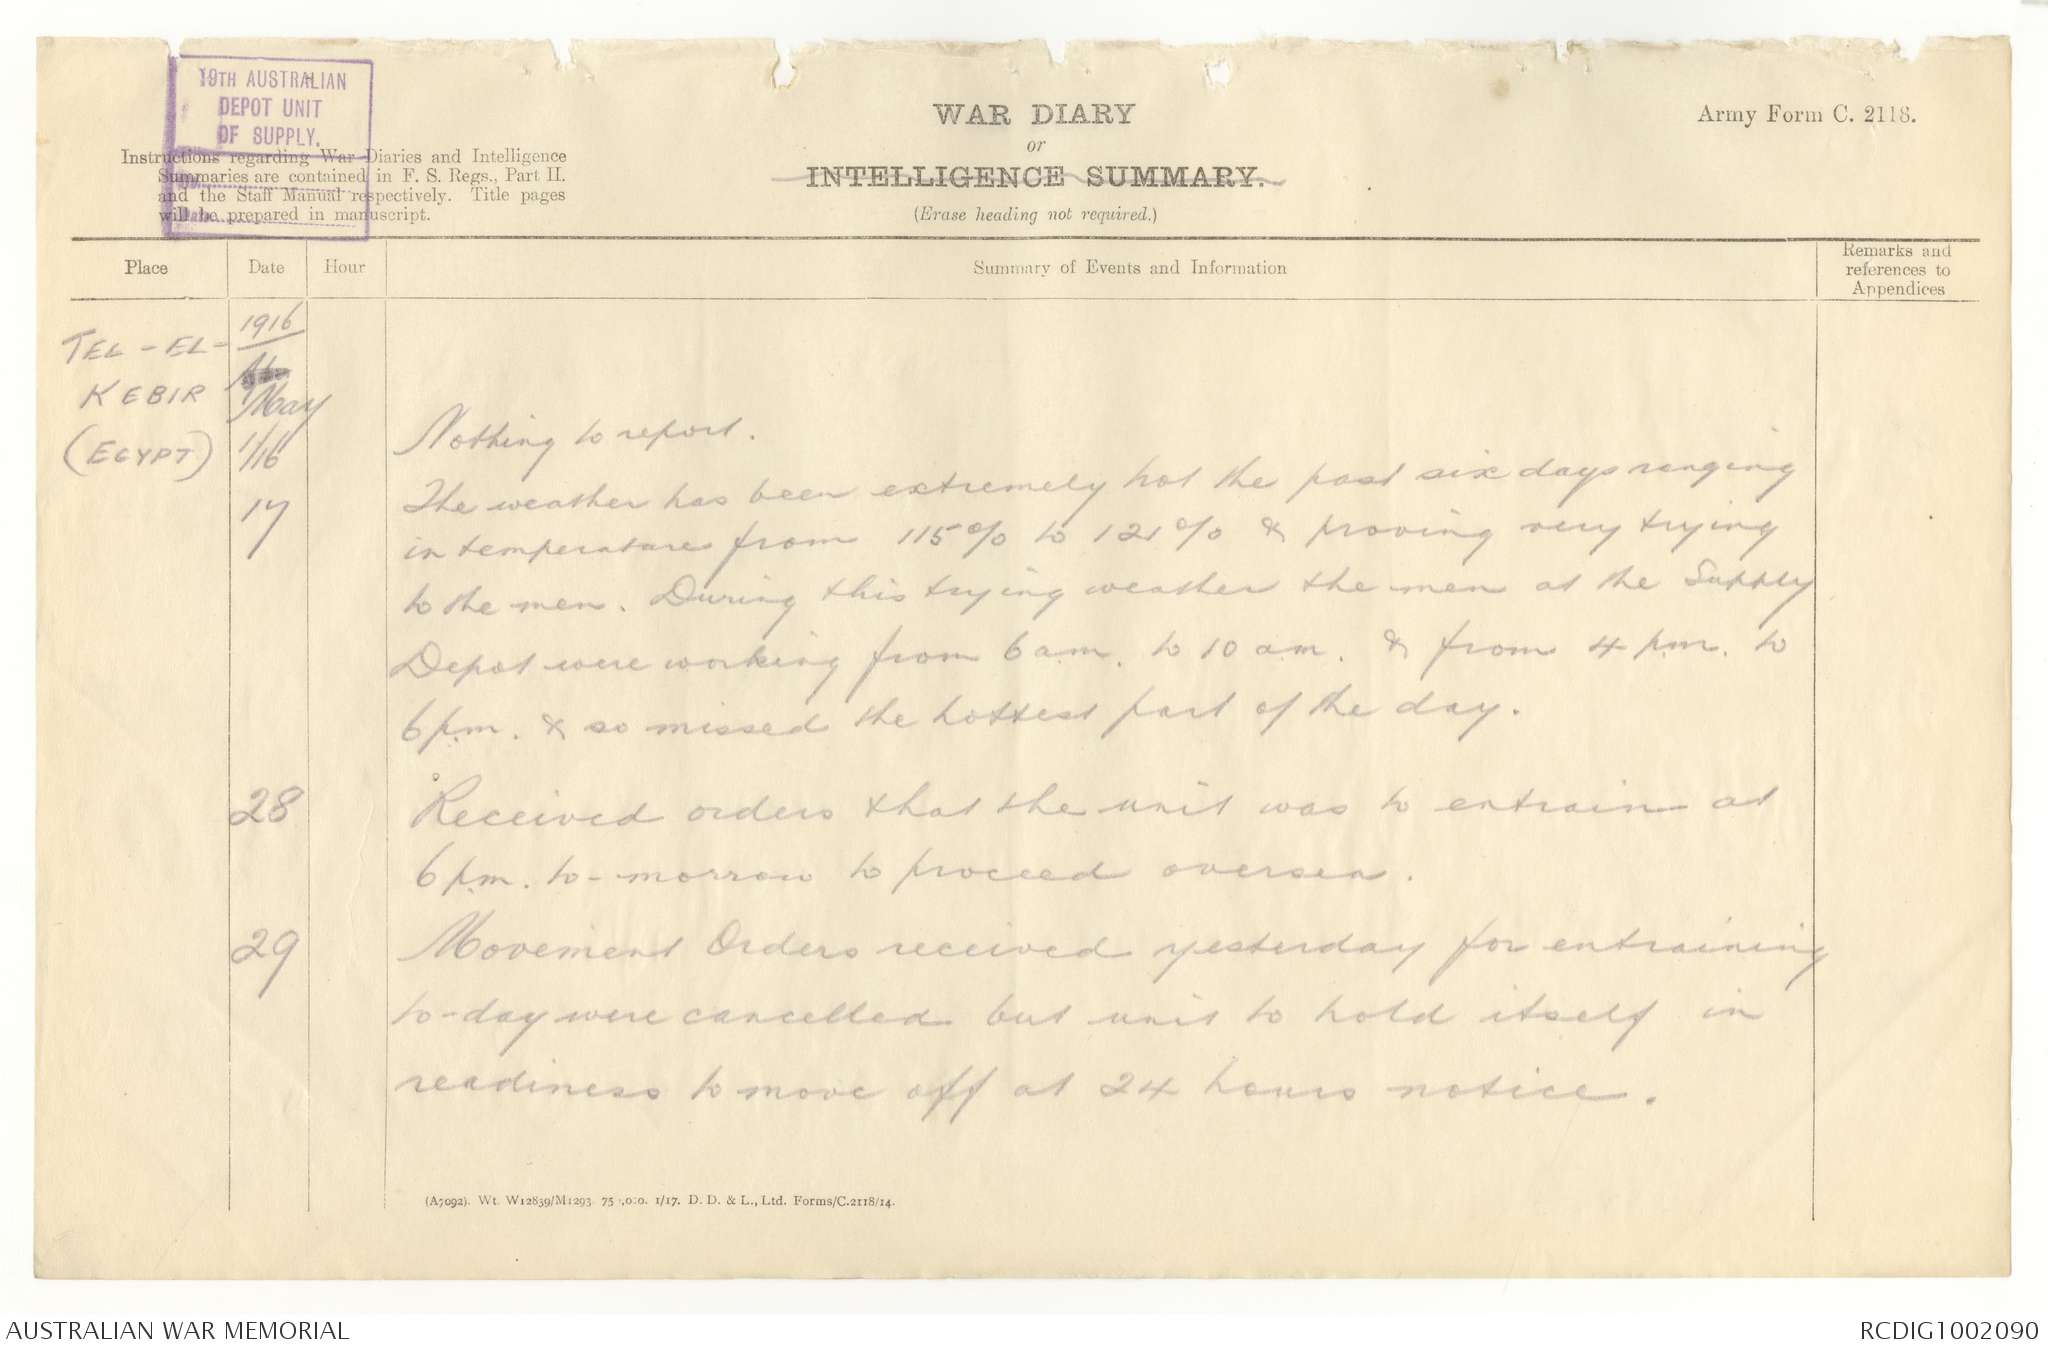 19TH AUSTRALIAN
DEPOT UNIT
OF SUPPLY.
Date
WAR DIARY
or
INTELLIGENCE SUMMARY.
(Erase heading not required.)
Army Form C. 2118.
Instructions regarding War Diaries and Intelligence
Summaries are contained in F. S. Regs., Part II.
and the Staff Manual respectively. Title pages
will be prepared in manuscript.
Place Date Hour Summary of Events and Information Remarks and
references to
Appendices
TEL-EL-
KEBIR
(EGYPT)
1916
May
1/16 Nothing to report.
17 The weather has been extremely hot the past six days ranging
in temperature from 115% to 121% & proving very trying
to the men. During this trying weather the men at the Supply
Depot were working from 6 a.m. to 10 a.m. & from 4 p.m. to
6 p.m. & so missed the hottest part of the day.
28 Received orders that the unit was to entrain at
6 p.m. to-morrow to proceed oversea.
29 Movement Orders received yesterday for entraining
to-day were cancelled but unit to hold itself in
readiness to move off at 24 hours notice.
(A7092). Wt. W12839/M1293. 75 ,0:0. 1/17. D. D. & L., Ltd. Forms/C.2118/14.
AUSTRALIAN WAR MEMORIAL
RCDIG1002090